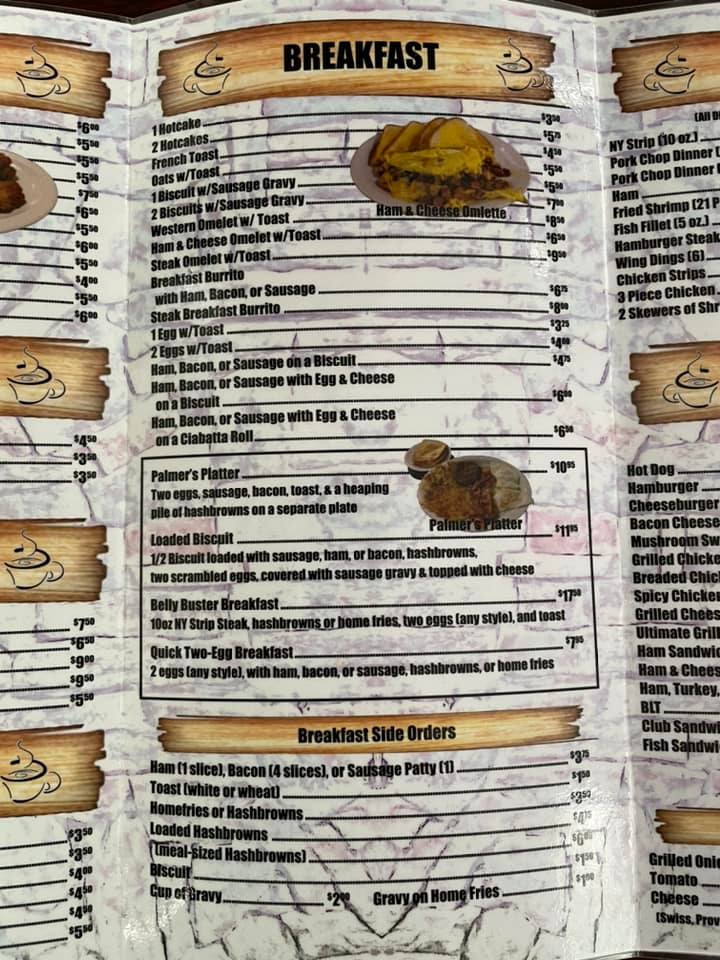 $6.00
$5.50
$5.50
$5.50
$7.50
$6.50
$5.50
$6.00
$5.50
$4.00
$5.50
$6.00
$4.50
$3.50
$3.50
$7.50
$6.50
$9.00
$9.50
$5.50
$3.50
$3.50
$4.00
$4.50
$4.00
$5.50
BREAKFAST
1 Hotcake $3.50
2 Hotcakes $5.75
French Toast $4.50
Oats w/Toast $5.50
1 Biscuit w/Sausage Gravy $5.50
2 Biscuits w/Sausage Gravy $7.00
Ham & Cheese Omlette
Western Omelet w/ Toast $8.50
Ham & Cheese Omelet w/Toast $6.50
Steak Omelet w/Toast $9.50
Breakfast Burrito
with Ham, Bacon, or Sausage $6.75
Steak Breakfast Burrito $8.00
1 Egg w/Toast $3.25
2 Eggs w/Toast $4.00
Ham, Bacon, or Sausage on a Biscuit $4.75
Ham, Bacon, or Sausage with Egg & Cheese
on a Biscuit $6.00
Ham, Bacon, or Sausage with Egg & Cheese
on a Ciabatta Roll $6.50
Palmer's Platter $10.95
Two eggs, sausage, bacon, toast, & a heaping
pile of hashbrowns on a separate plate
Palmer's Platter
Loaded Biscuit $11.95
1/2 Biscuit loaded with sausage, ham, or bacon, hashbrowns,
two scrambled eggs, covered with sausage gravy & topped with cheese
Belly Buster Breakfast $17.50
10oz NY Strip Steak, hashbrowns or home fries, two eggs (any style), and toast
Quick Two-Egg Breakfast $7.95
2 eggs (any style), with ham, bacon, or sausage, hashbrowns, or home fries
Breakfast Side Orders
Ham (1 slice), Bacon (4 slices), or Sausage Patty (1) $3.75
Toast (white or wheat) $1.50
Homefries or Hashbrowns $3.50
Loaded Hashbrowns $4.75
(meal-sized Hashbrowns) $6.00
Biscuit $1.50
Cup of Gravy $2.00 Gravy on Home Fries $1.00
(All
NY Strip (10 oz.)
Pork Chop Dinner
Pork Chop Dinner
Ham
Fried Shrimp (21
Fish Fillet (5 oz.)
Hamburger Steak
Wing Dings (6)
Chicken Strips
3 Piece Chicken
2 Skewers of
Hot Dog
Hamburger
Cheeseburger
Bacon Cheese
Mushroom
Grilled
Breaded
Spicy
Grilled
Ultimate
Ham
Ham &
Ham, Turkey,
BLT
Club
Fish
Grilled
Tomato
Cheese
(Swiss,